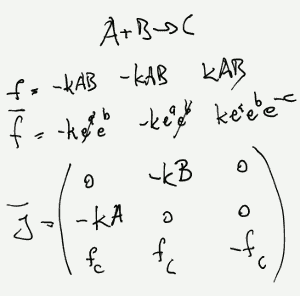 A + B → C
f = -kAB -kAB kAB
f̅ = -ke̸ᵃ̸eᵇ -keᵃe̸ᵇ̸ keᵃeᵇe⁻ᶜ
J̅ = ( 0 -kB 0
-kA 0 0
f_c f_c -f_c )